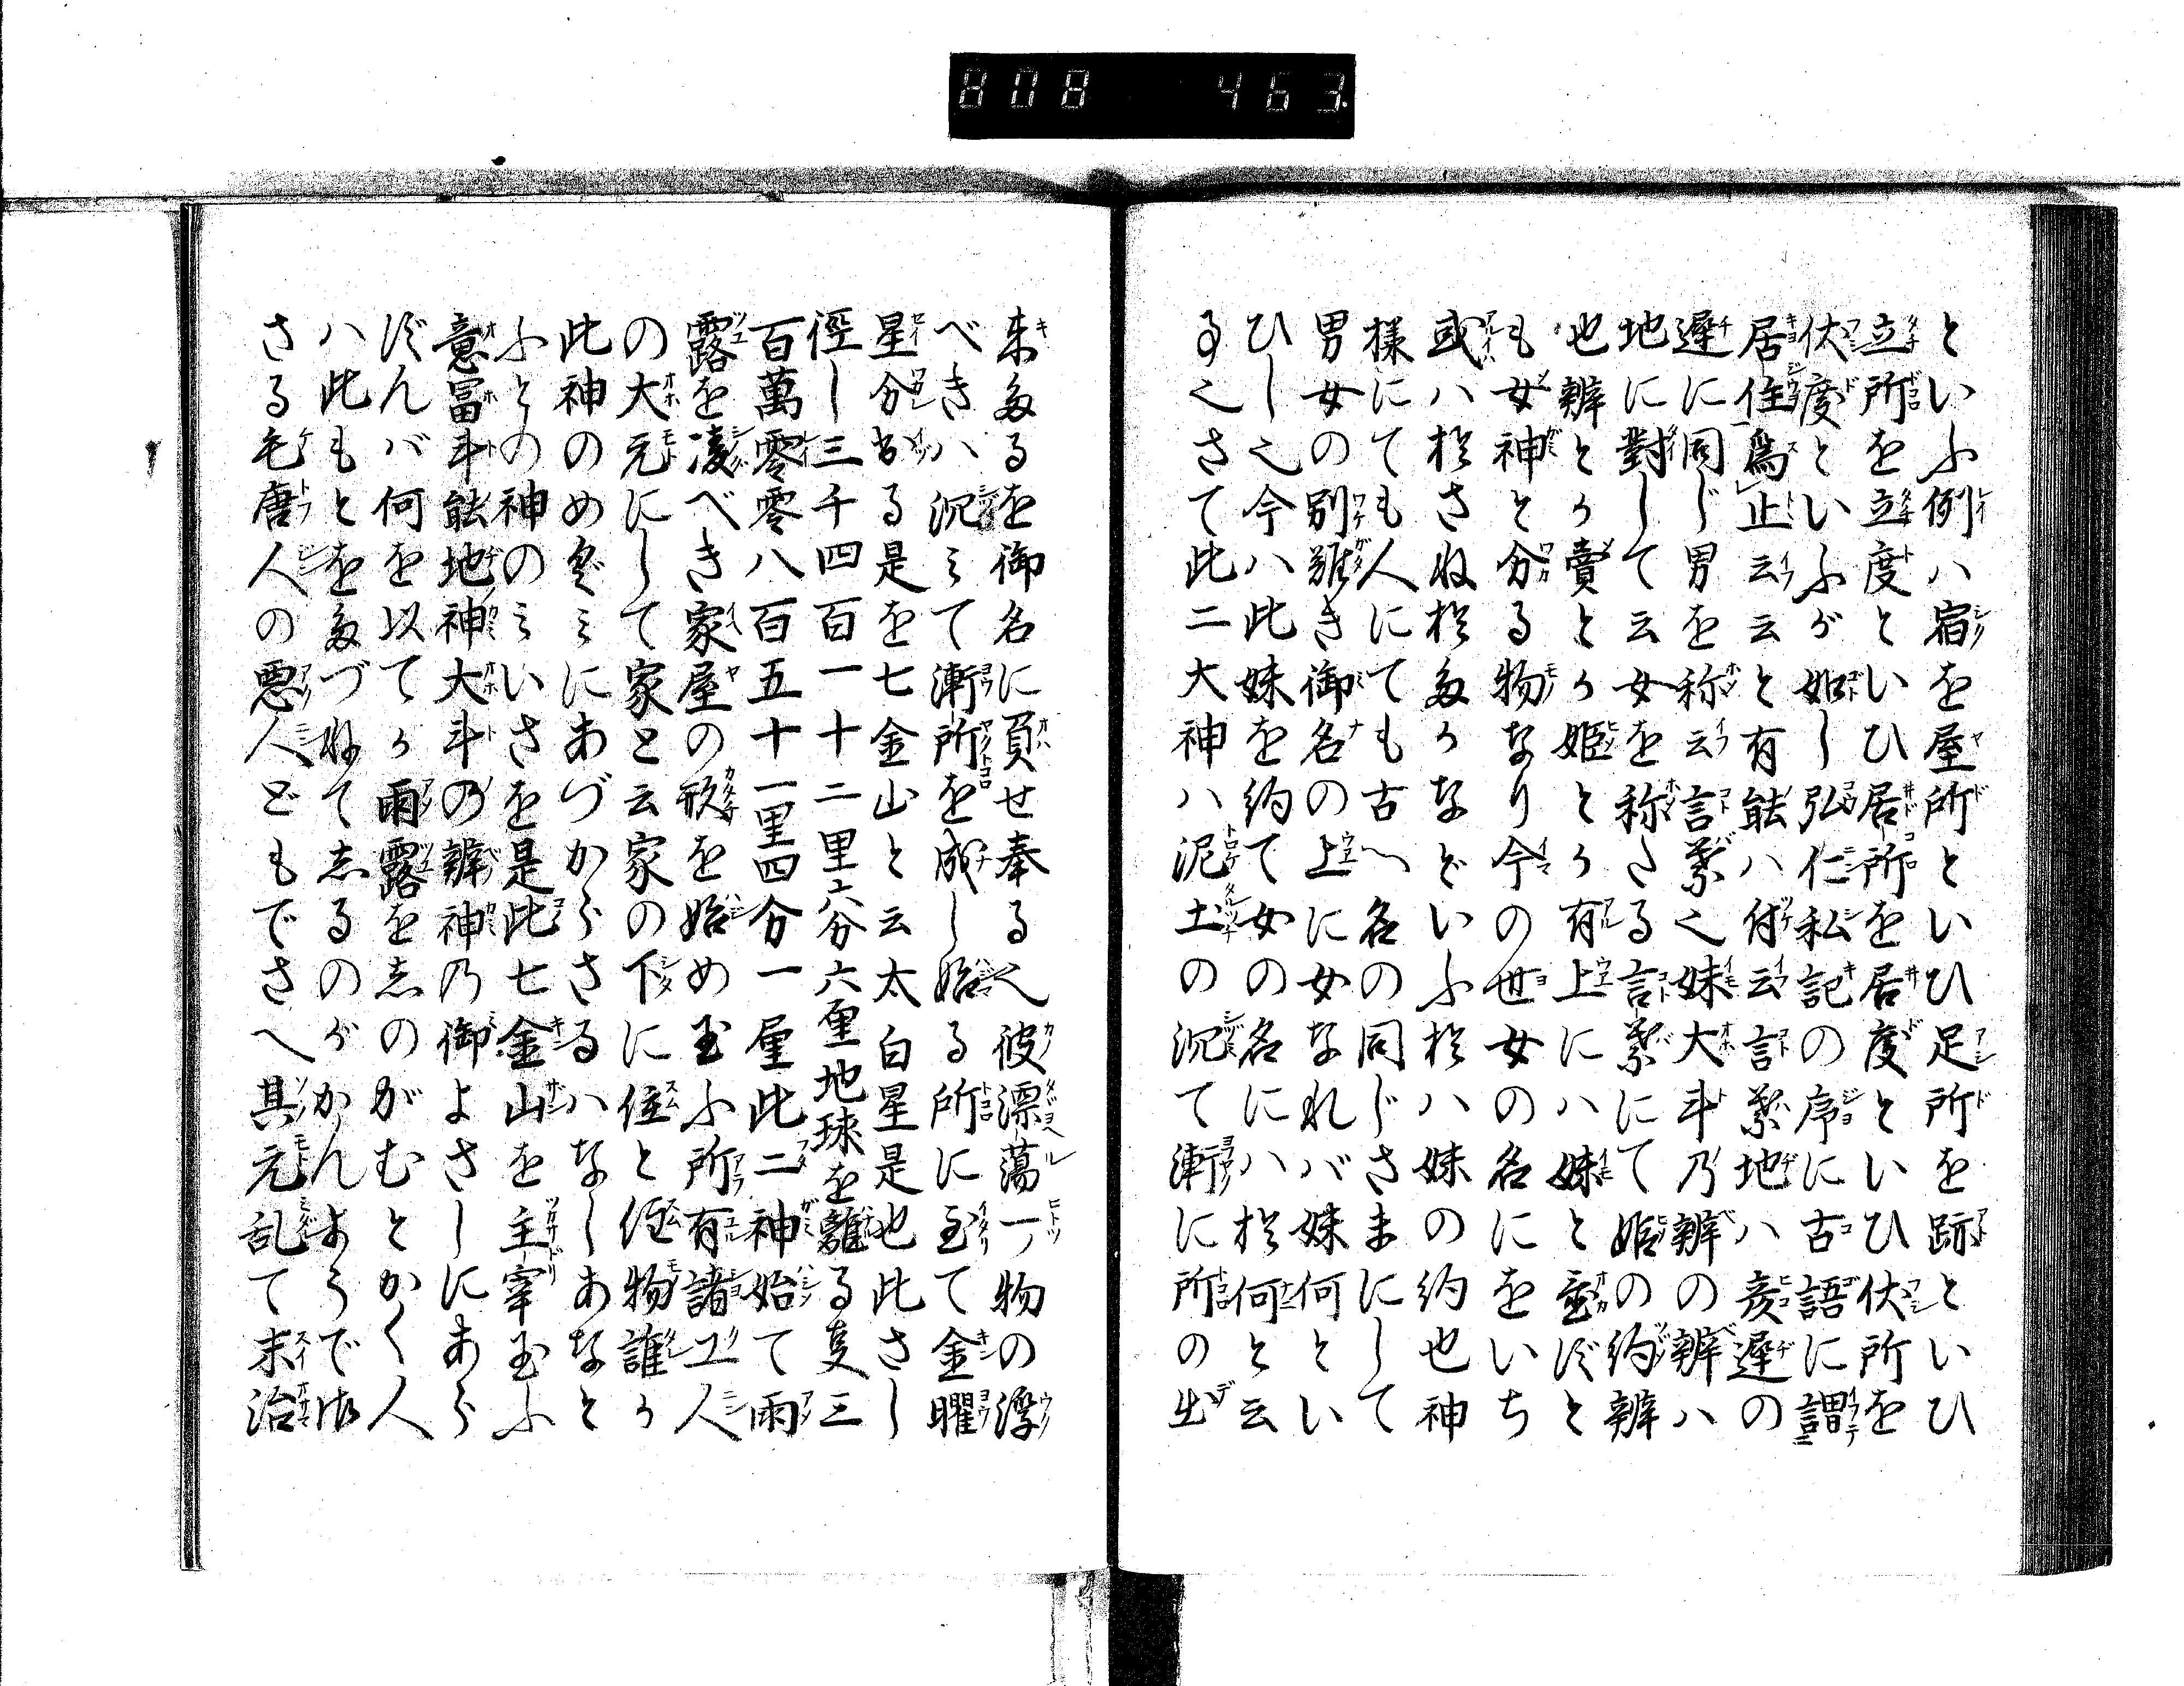 808 463
といふ例ハ宿を屋所といひ足所を跡といひ
立所を立度といひ居所を居度といひ伏所を
伏度といふが如し弘仁私記の序に古語に謂
居住爲止云云と有能ハ付云言繋地ハ彦遅の
遅に同じ男を称云言繋く妹大斗乃辨の辨ハ
地に對して云女を称たる言繋にて姫の約辨
也辨とか賣とか姫とか有上にハ妹と重ずと
も女神と分る物なり今の世女の名にをいち
或ハ於さね於多かなどいふ於ハ妹の約也神
様にても人にても古へ名の同じさまにして
男女の別難き御名の上に女なれバ妹何とい
ひし也今ハ此妹を約て女の名にハ於何と云
る也さて此二大神ハ泥土の沉て漸に所の出
来多るを御名に負せ奉る也彼漂蕩一物の浮
べきハ沉ミて漸所を成し始る所に至て金曜
星分出る是を七金山と云太白星是也此さし
徑し三千四百一十二里六分六厘地球を離る隻三
百萬零零八百五十一里四分一厘此二神始て雨
露を凌べき家屋の形を始め玉ふ所有諸工人
の大元にして家と云家の下に住と住物誰か
此神のめぐミにあづからさるハなしあなと
ふとの神のミいさを是此七金山を主宰玉ふ
意冨斗能地神大斗乃辨神乃御よさしにあら
ずんバ何を以てか雨露を志のがむとかく人
ハ此もとを多づねて志るのがかんようでは
さる毛唐人の悪人どもでさへ其元乱て末治